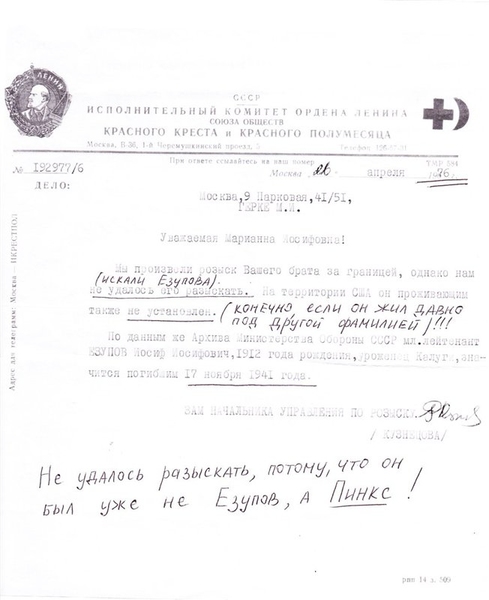 ЛЕНИН
СССР
ИСПОЛНИТЕЛЬНЫЙ КОМИТЕТ ОРДЕНА ЛЕНИНА
СОЮЗА ОБЩЕСТВ
КРАСНОГО КРЕСТА и КРАСНОГО ПОЛУМЕСЯЦА
Москва, В-36, 1-й Черемушкинский проезд, 5 Телефон
При ответе ссылайтесь на наш номер
№ I92977/6 Москва „26 апреля
ДЕЛО:
Москва,9 Парковая,4I/5I,
ГЕРКЕ М.И.
Уважаемая Марианна Иосифовна!
Мы произвели розыск Вашего брата за границей, однако нам
(искали Езупова).
не удалось его разыскать. На территории США он проживающим
также не установлен. (конечно, если он жил давно
под другой фамилией)!!!
По данным же Архива Министерства Обороны СССР мл.лейтенант
ЕЗУПОВ Иосиф Иосифович,1912 года рождения,уроженец Калуга,зна-
чится погибшим 17 ноября 1941 года.
ЗАМ НАЧАЛЬНИКА УПРАВЛЕНИЯ ПО РОЗЫСКУ
/ КУЗНЕЦОВА/
Не удалось разыскать, потому, что он
был уже не Езупов, а Пинкс!
Адрес для телеграмм: Москва — ИКРЕСТПОЛ
рип 14 з. 500